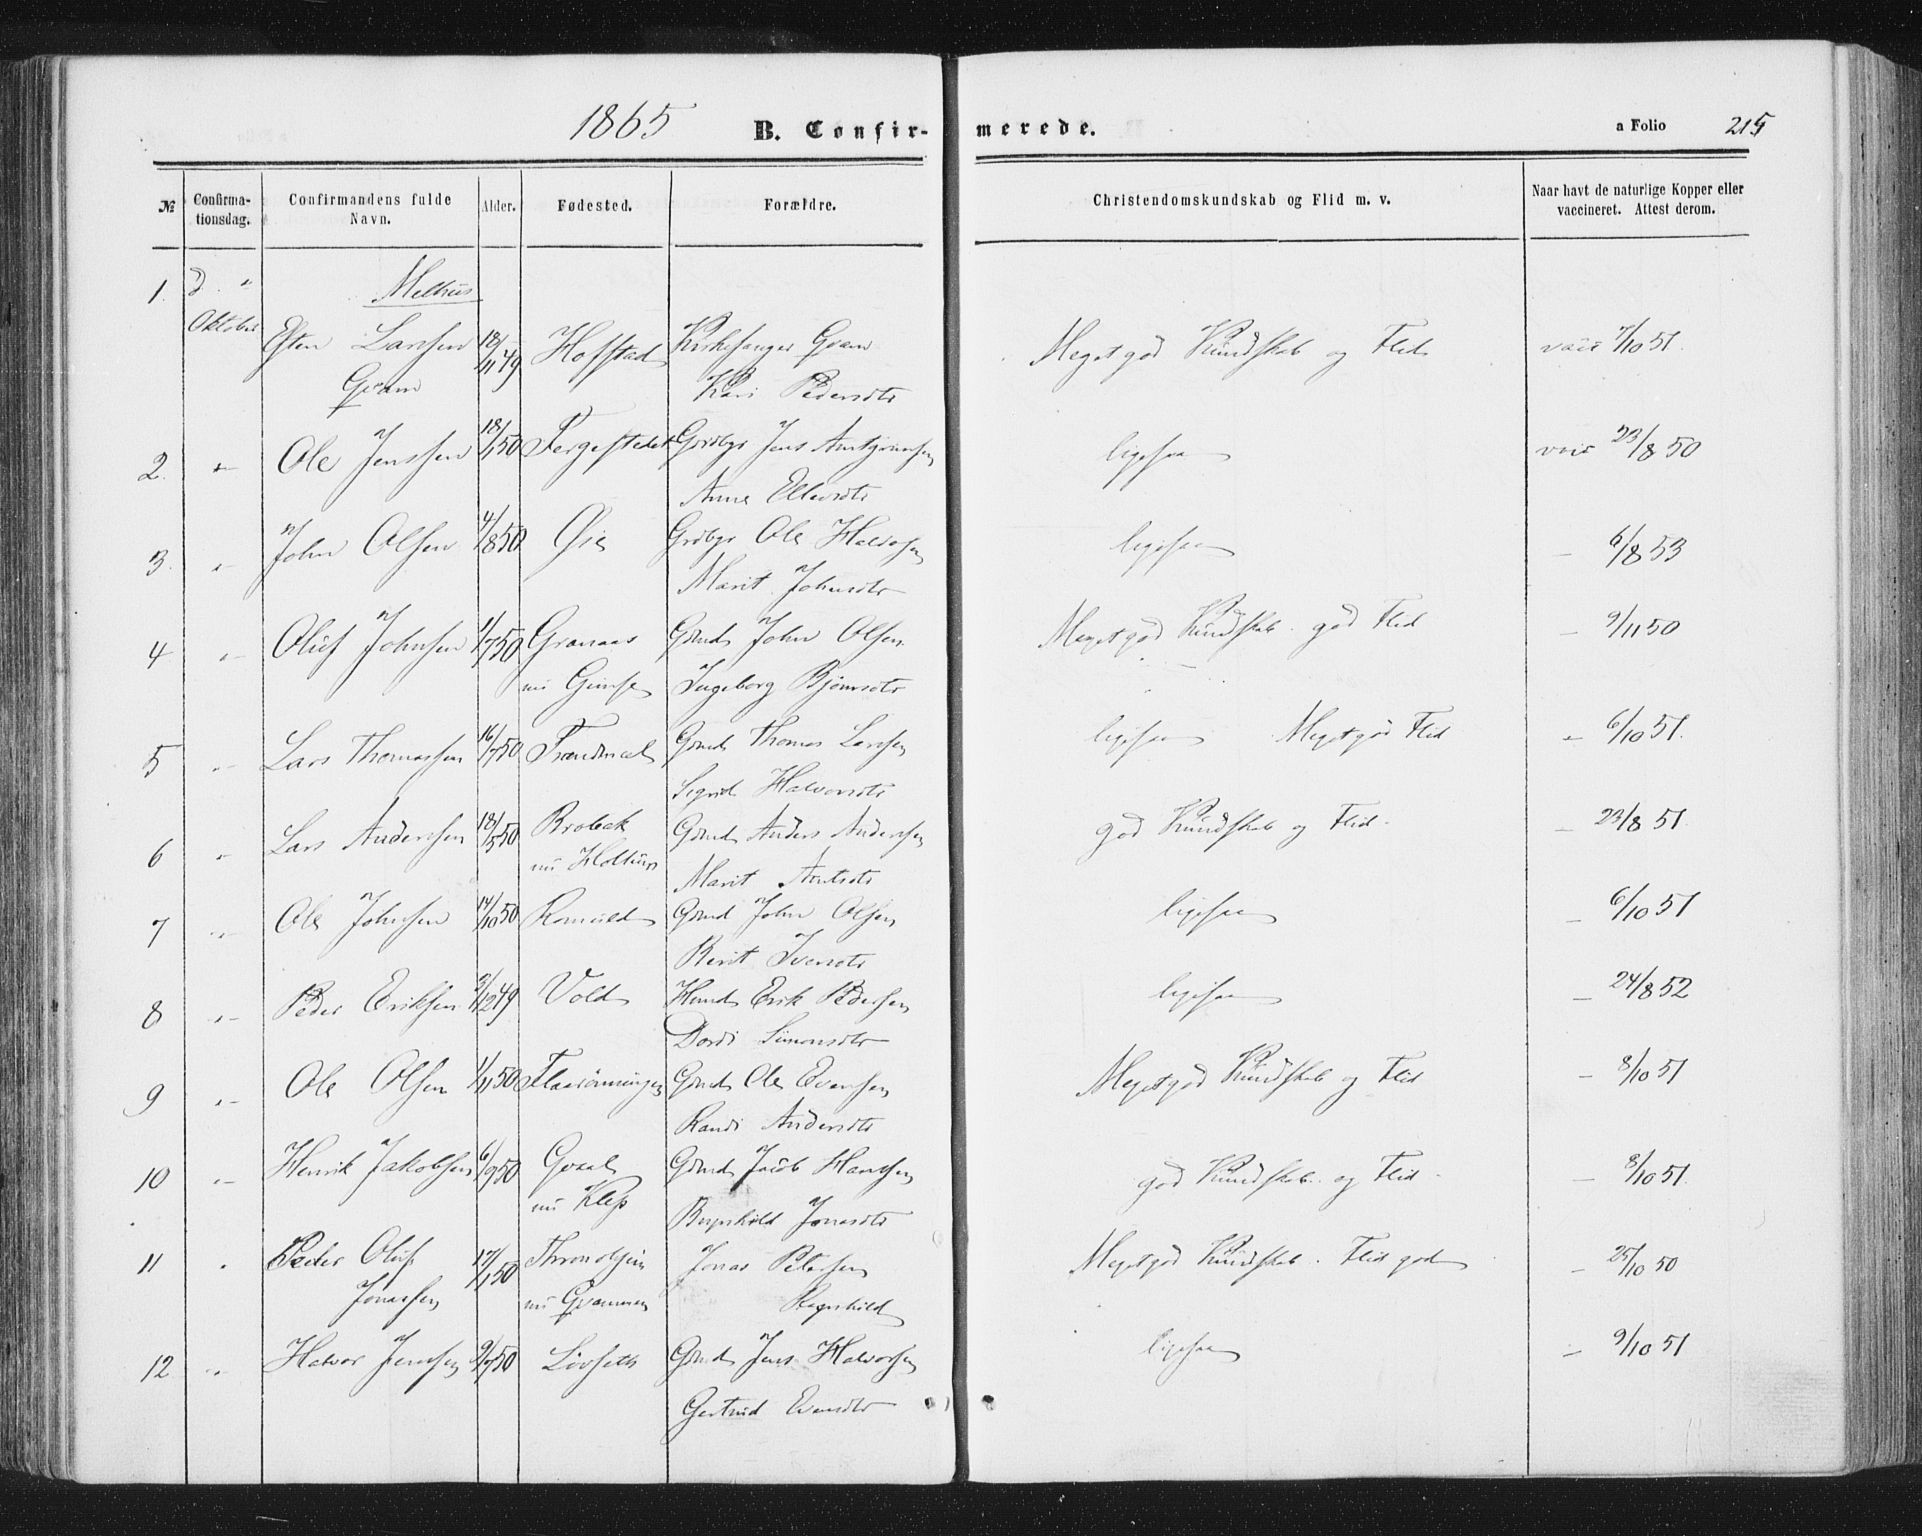 1865 B. Confirmerede. a Folio 215
№ Confirmationsdag. Confirmandens fulde Navn. Alder. Fødested. Forældre. Christendomskundskab og Flid m. v. Naar havt de naturlige Kopper eller vaccineret. Attest derom.
Melhus
1. Oktober Esten Larssen 18/11 49 Hofstad Kirkesanger Qvam Meget god Kundskab og Flid vacc 7/10 51.
Qvam Kari Pedersdtr
2. Ole Jenssen 18/1 50 Fergestedet Grdbgr Jens Arntzen 23/8 50 ligesaa
Anne Ellevsdtr
3. John Olsen 4/8 50 Øie Grdbgr Ole Halvorsen ligesaa – 6/8 53
Marit Johnsdtr
4 Oluf Johnsen 1/7 50 Granaas Gmd John Olsen Meget god Kundskab. god Flid – 9/11 50
nu Gimse Ingeborg Bjørnsdtr
5 Lars Thomassen 16/7 50 Gmd Thomas Larssen ligesaa Meget god Flid 6/10 51.
Sigrid Halvorsdtr
6 Lars Anderssen 18/5 50 Brobak Gmd Anders Anderssen god Kundskab og Flid – 23/8 51.
nu Marit Arntsdtr
7 Ole Johnsen 14/10 50 Romuld Gmd John Olsen ligesaa – 6/10 51
Berit Iversdtr
8 Peder Eriksen 2/12 49 Vold Hmd Erik Pedersen ligesaa – 24/8 52
Dordi Simonsdtr
9 Ole Olsen 1/11 50 Flaarønningen Gmd Ole Evensen Meget god Kundskab og Flid – 8/10 51
Randi Andersdtr
10 Henrik Jakobsen 6/9 50 Gmd Jacob Hanssen god Kundskab og Flid – 8/10 51.
nu Klep Jonasdtr
11 Peder Oluf 17/1 50 Throndhjem Jonas Petersen Meget god Kundskab. Flid god – 25/10 50
Jonassen nu Qvammen Ragnhild
12 Halvor Jenssen 9/7 50 Løvseth Gmd Jens Halvorsen ligesaa – 9/10 51
Gertrud Evensdtr